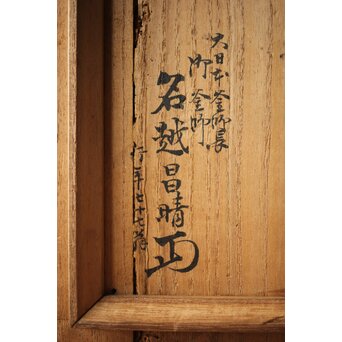 大日本釜師長
御釜師
名越昌晴
行年七十七歳